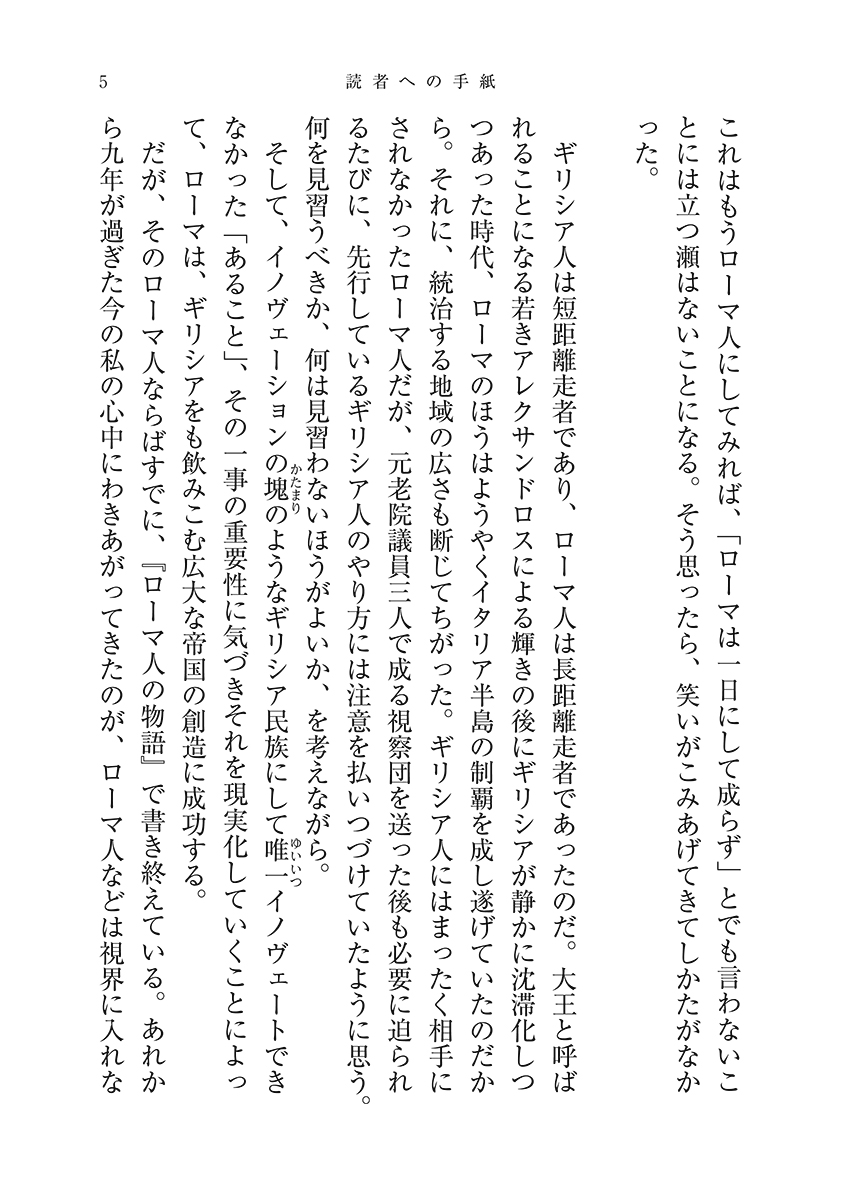 5
読者への手紙
これはもうローマ人にしてみれば、「ローマは一日にして成らず」とでも言わないこ
とには立つ瀬はないことになる。そう思ったら、笑いがこみあげてきてしかたがなか
った。
ギリシア人は短距離走者であり、ローマ人は長距離走者であったのだ。大王と呼ば
れることになる若きアレクサンドロスによる輝きの後にギリシアが静かに沈滞化しつ
つあった時代、ローマのほうはようやくイタリア半島の制覇を成し遂げていたのだか
ら。それに、統治する地域の広さも断じてちがった。ギリシア人にはまったく相手に
されなかったローマ人だが、元老院議員三人で成る視察団を送った後も必要に迫られ
るたびに、先行しているギリシア人のやり方には注意を払いつづけていたように思う。
何を見習うべきか、何は見習わないほうがよいか、を考えながら。
そして、イノヴェーションの塊かたまりのようなギリシア民族にして唯一ゆいいつイノヴェートでき
なかった「あること」、その一事の重要性に気づきそれを現実化していくことによっ
て、ローマは、ギリシアをも飲みこむ広大な帝国の創造に成功する。
だが、そのローマ人ならばすでに、『ローマ人の物語』で書き終えている。あれか
ら九年が過ぎた今の私の心中にわきあがってきたのが、ローマ人などは視界に入れな